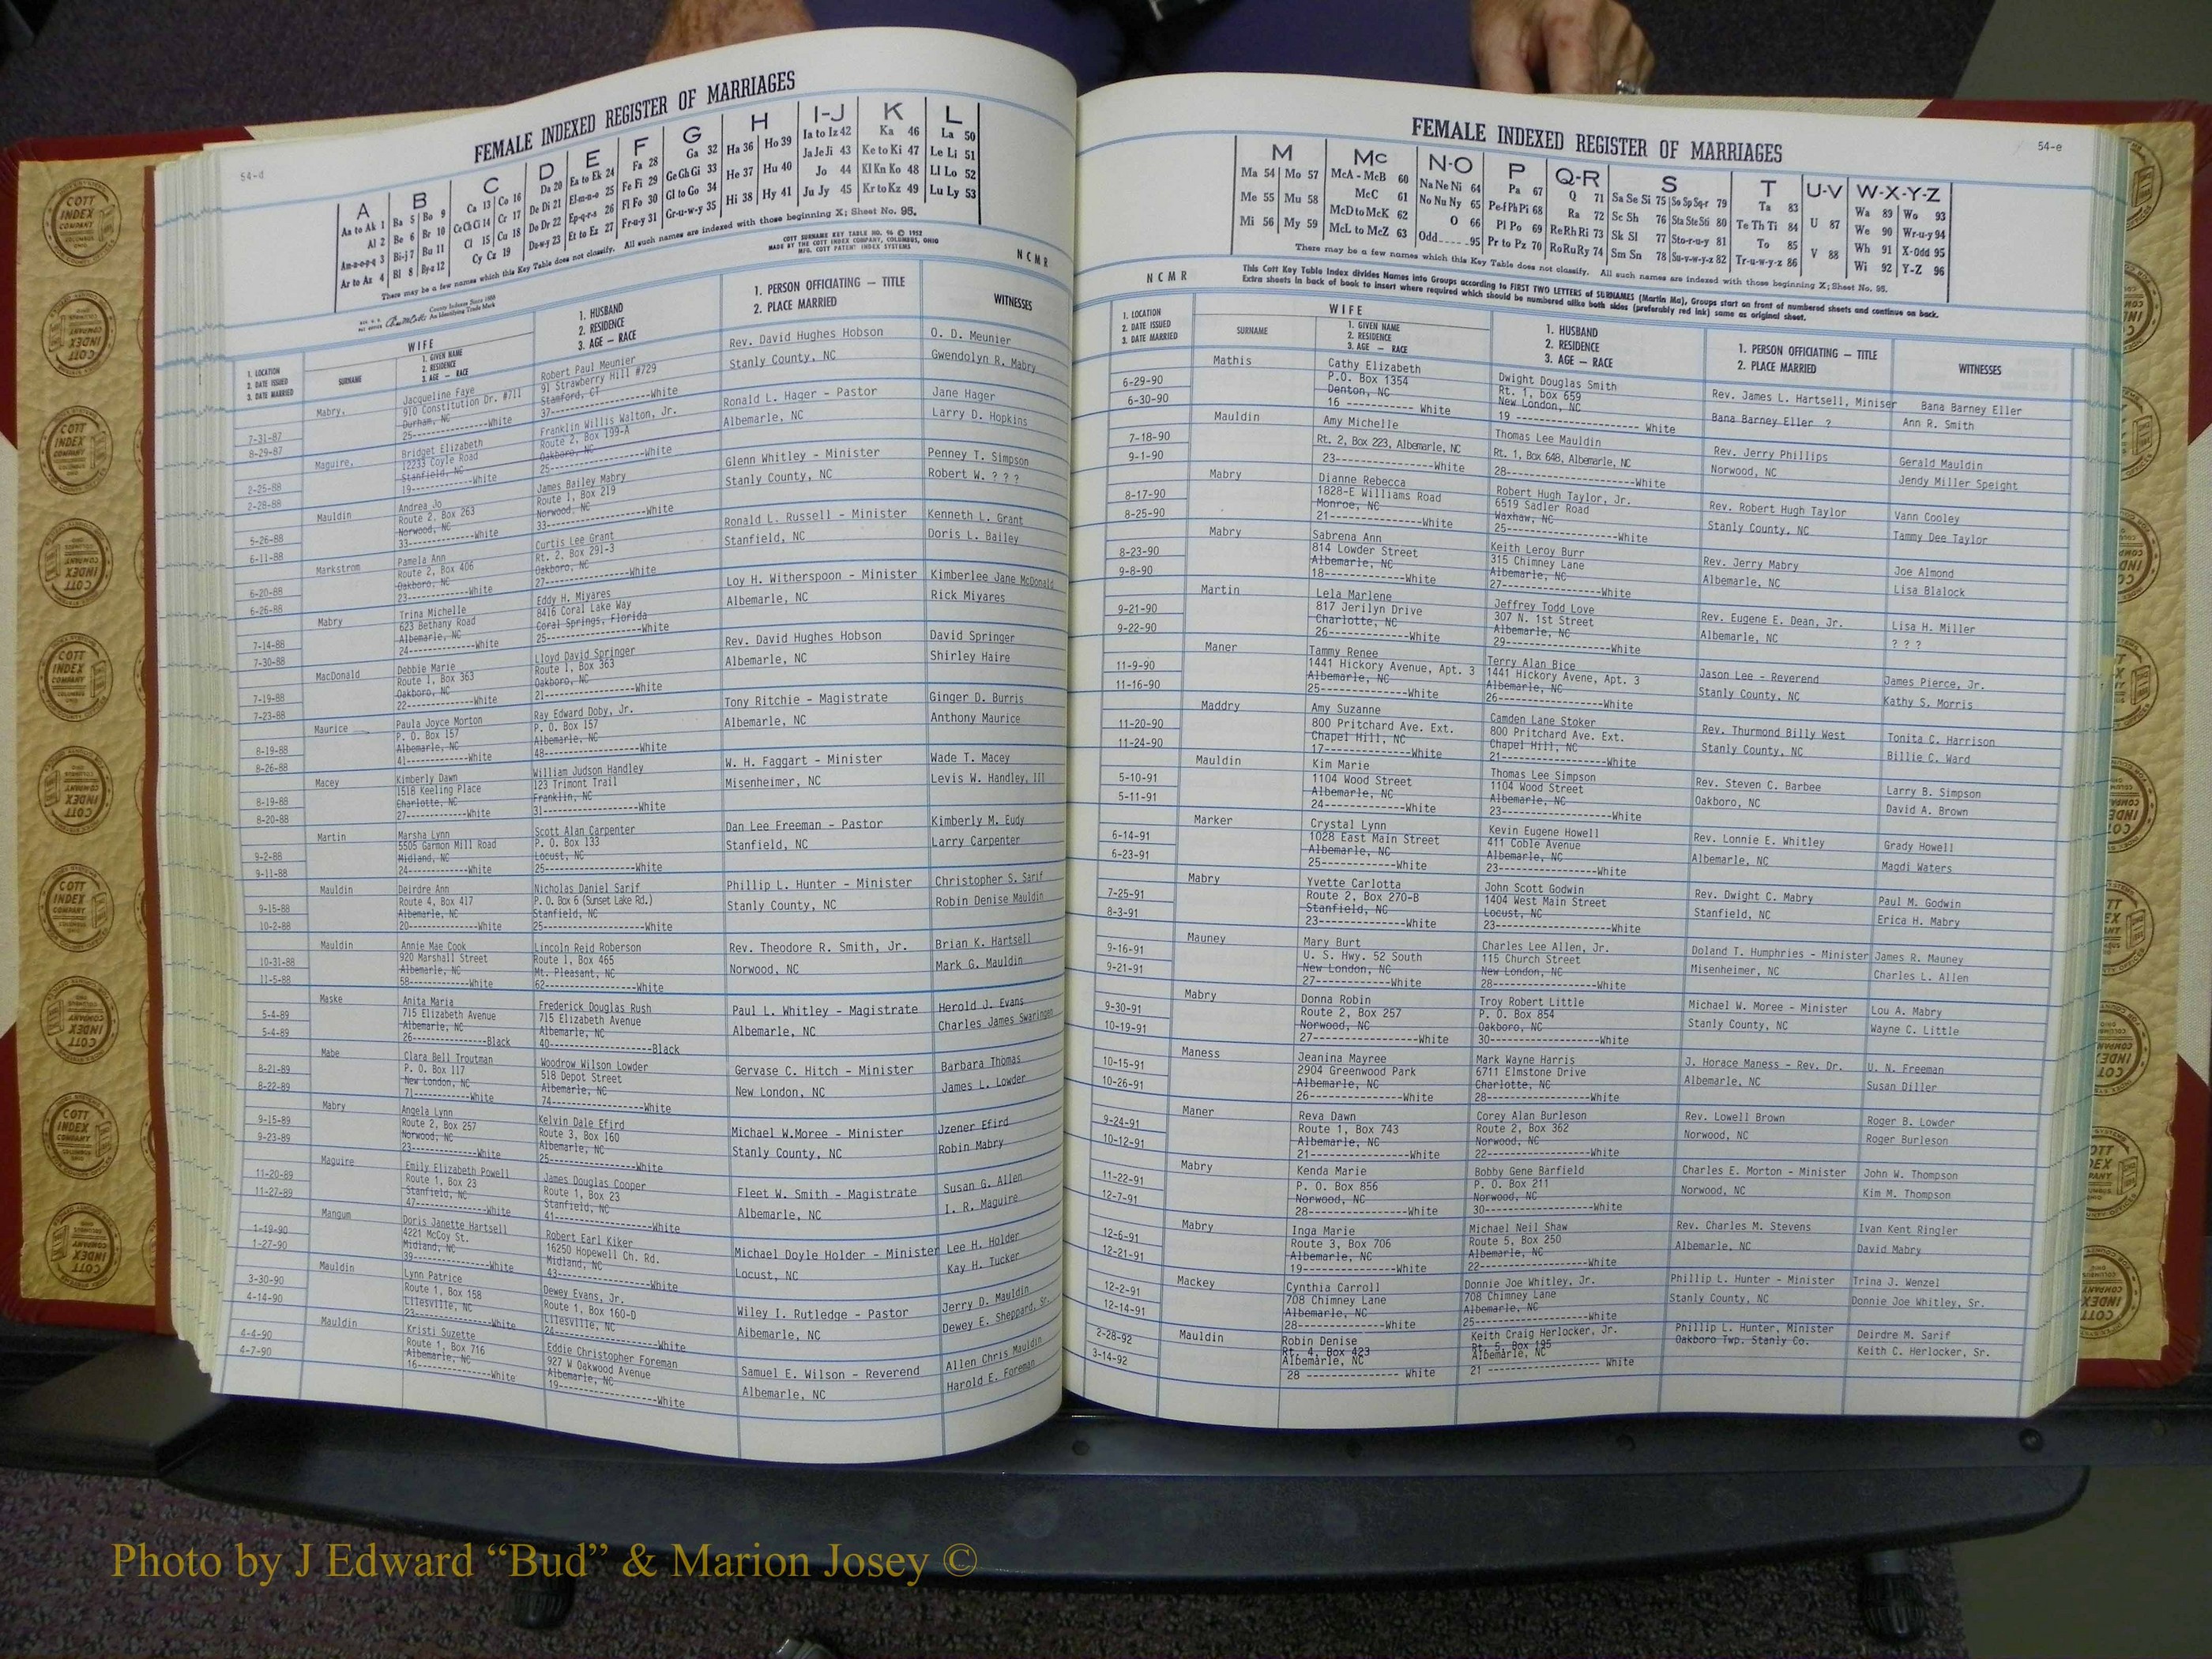 54-d
FEMALE INDEXED REGISTER OF MARRIAGES
A B C D E F G H I-J K L
Aa to Ak 1 Ba 5 Bo 9 Ca 13 Co 16 Da 20 Ea to Ek 24 Fa 28 Ga 32 Ha 36 Ho 39 Ia to Iz 42 Ka 46 La 50
Al 2 Be 6 Br 10 Ce Ch Ci 14 Cr 17 De Di 21 El-m-n-o 25 Fe Fi 29 Ge Gh Gi 33 He 37 Hu 40 Ja Je Ji 43 Ke to Ki 47 Le Li 51
Am-n-o-p-q 3 Bi-j 7 Bu 11 Cl 15 Cu 18 Do Dr 22 Ep-q-r-s 26 Fl Fo 30 Gl to Go 34 Hi 38 Hy 41 Jo 44 Kl Kn Ko 48 Ll Lo 52
Ar to Az 4 Bl 8 By-z 12 Cy Cz 19 Du-w-y 23 Et to Ez 27 Fr-u-y 31 Gr-u-w-y 35 Ju Jy 45 Kr to Kz 49 Lu Ly 53
There may be a few names which this Key Table does not classify. All such names are indexed with those beginning X; Sheet No. 95.
COTT SURNAME KEY TABLE NO. 96 © 1952
MADE BY THE COTT INDEX COMPANY, COLUMBUS, OHIO
MFG. COTT PATENT INDEX SYSTEMS
County Indexes Since 1888
An Identifying Trade Mark
NCMR
1. LOCATION
2. DATE ISSUED
3. DATE MARRIED
WIFE
SURNAME
1. GIVEN NAME
2. RESIDENCE
3. AGE — RACE
1. HUSBAND
2. RESIDENCE
3. AGE — RACE
1. PERSON OFFICIATING — TITLE
2. PLACE MARRIED
WITNESSES
Mabry, Jacqueline Faye Robert Paul Meunier Rev. David Hughes Hobson O. D. Meunier
910 Constitution Dr. #711 91 Strawberry Hill #729 Stanly County, NC Gwendolyn R. Mabry
7-31-87 Durham, NC Stamford, CT
8-29-87 25------------White 37------------White
Maguire, Bridget Elizabeth Franklin Willis Walton, Jr. Ronald L. Hager - Pastor Jane Hager
12233 Coyle Road Route 2, Box 199-A Albemarle, NC Larry D. Hopkins
2-25-88 Stanfield, NC Oakboro, NC
2-28-88 19------------White 25------------White
Mauldin Andrea Jo James Bailey Mabry Glenn Whitley - Minister Penney T. Simpson
Route 2, Box 263 Route 1, Box 219 Stanly County, NC Robert W. ? ? ?
5-26-88 Norwood, NC Norwood, NC
6-11-88 33------------White 33------------White
Markstrom Pamela Ann Curtis Lee Grant Ronald L. Russell - Minister Kenneth L. Grant
Route 2, Box 406 Rt. 2, Box 291-3 Stanfield, NC Doris L. Bailey
6-20-88 Oakboro, NC Oakboro, NC
6-26-88 23------------White 27------------White
Mabry Trina Michelle Eddy H. Miyares Loy H. Witherspoon - Minister Kimberlee Jane McDonald
623 Bethany Road 8416 Coral Lake Way Albemarle, NC Rick Miyares
7-14-88 Albemarle, NC Coral Springs, Florida
7-30-88 24------------White 25------------White
MacDonald Debbie Marie Lloyd David Springer Rev. David Hughes Hobson David Springer
Route 1, Box 363 Route 1, Box 363 Albemarle, NC Shirley Haire
7-19-88 Oakboro, NC Oakboro, NC
7-23-88 22------------White 21------------White
Maurice Paula Joyce Morton Ray Edward Doby, Jr. Tony Ritchie - Magistrate Ginger D. Burris
P. O. Box 157 P. O. Box 157 Albemarle, NC Anthony Maurice
8-19-88 Albemarle, NC Albemarle, NC
8-26-88 41------------White 48------------White
Macey Kimberly Dawn William Judson Handley W. H. Faggart - Minister Wade T. Macey
1518 Keeling Place 123 Trimont Trail Misenheimer, NC Levis W. Handley, III
8-19-88 Charlotte, NC Franklin, NC
8-20-88 27------------White 31------------White
Martin Marsha Lynn Scott Alan Carpenter Dan Lee Freeman - Pastor Kimberly M. Eudy
5505 Garmon Mill Road P. O. Box 133 Stanfield, NC Larry Carpenter
9-2-88 Midland, NC Locust, NC
9-11-88 24------------White 25------------White
Mauldin Deirdre Ann Nicholas Daniel Sarif Phillip L. Hunter - Minister Christopher S. Sarif
Route 4, Box 417 P. O. Box 6 (Sunset Lake Rd.) Stanly County, NC Robin Denise Mauldin
9-15-88 Albemarle, NC Stanfield, NC
10-2-88 20------------White 25------------White
Mauldin Annie Mae Cook Lincoln Reid Roberson Rev. Theodore R. Smith, Jr. Brian K. Hartsell
10-31-88 920 Marshall Street Route 1, Box 465 Norwood, NC Mark G. Mauldin
Albemarle, NC Mt. Pleasant, NC
11-5-88 58------------White 62------------White
Maske Anita Maria Frederick Douglas Rush Paul L. Whitley - Magistrate Herold J. Evans
5-4-89 715 Elizabeth Avenue 715 Elizabeth Avenue Albemarle, NC Charles James Swaringen
5-4-89 Albemarle, NC Albemarle, NC
26------------Black 40------------Black
Mabe Clara Bell Troutman Woodrow Wilson Lowder Gervase C. Hitch - Minister Barbara Thomas
8-21-89 P. O. Box 117 518 Depot Street New London, NC James L. Lowder
8-22-89 New London, NC Albemarle, NC
71------------White 74------------White
Mabry Angela Lynn Kelvin Dale Efird Michael W.Moree - Minister Jzener Efird
9-15-89 Route 2, Box 257 Route 3, Box 160 Stanly County, NC Robin Mabry
9-23-89 Norwood, NC Albemarle, NC
23------------White 25------------White
Maguire Emily Elizabeth Powell James Douglas Cooper Fleet W. Smith - Magistrate Susan G. Allen
11-20-89 Route 1, Box 23 Route 1, Box 23 Albemarle, NC I. R. Maguire
11-27-89 Stanfield, NC Stanfield, NC
47------------White 41------------White
Mangum Doris Janette Hartsell Robert Earl Kiker Michael Doyle Holder - Minister Lee H. Holder
1-19-90 4221 McCoy St. 16250 Hopewell Ch. Rd. Locust, NC Kay H. Tucker
1-27-90 Midland, NC Midland, NC
39------------White 43------------White
Mauldin Lynn Patrice Dewey Evans, Jr. Wiley I. Rutledge - Pastor Jerry D. Mauldin
3-30-90 Route 1, Box 158 Route 1, Box 160-D Albemarle, NC Dewey E. Sheppard, Sr.
4-14-90 Lilesville, NC Lilesville, NC
23------------White 24------------White
Mauldin Kristi Suzette Eddie Christopher Foreman Samuel E. Wilson - Reverend Allen Chris Mauldin
4-4-90 Route 1, Box 716 927 W Oakwood Avenue Albemarle, NC Harold E. Foreman
4-7-90 Albemarle, NC Albemarle, NC
16------------White 19------------White
54-e
FEMALE INDEXED REGISTER OF MARRIAGES
M Mc N-O P Q-R S T U-V W-X-Y-Z
Ma 54 Mo 57 McA - McB 60 Na Ne Ni 64 Pa 67 Q 71 Sa Se Si 75 So Sp Sq-r 79 Ta 83 U 87 Wa 89 Wo 93
Me 55 Mu 58 McC 61 No Nu Ny 65 Pe-f Ph Pi 68 Ra 72 Sc Sh 76 Sta Ste Sti 80 Te Th Ti 84 V 88 We 90 Wr-u-y 94
Mi 56 My 59 McD to McK 62 O 66 Pl Po 69 Re Rh Ri 73 Sk Sl 77 Sto-r-u-y 81 To 85 Wh 91 X-Odd 95
McL to McZ 63 Odd.....95 Pr to Pz 70 Ro Ru Ry 74 Sm Sn 78 Su-v-w-y-z 82 Tr-u-w-y-z 86 Wi 92 Y-Z 96
There may be a few names which this Key Table does not classify. All such names are indexed with those beginning X; Sheet No. 95.
NCMR
This Cott Key Table Index divides Names into Groups according to FIRST TWO LETTERS of SURNAMES (Martin Ma), Groups start on front of numbered sheets and continue on back.
Extra sheets in back of book to insert where required which should be numbered alike both sides (preferably red ink) same as original sheet.
1. LOCATION
2. DATE ISSUED
3. DATE MARRIED
WIFE
SURNAME
1. GIVEN NAME
2. RESIDENCE
3. AGE — RACE
1. HUSBAND
2. RESIDENCE
3. AGE — RACE
1. PERSON OFFICIATING — TITLE
2. PLACE MARRIED
WITNESSES
Mathis Cathy Elizabeth Dwight Douglas Smith Rev. James L. Hartsell, Miniser Bana Barney Eller
6-29-90 P.O. Box 1354 Rt. 1, box 659 Bana Barney Eller ? Ann R. Smith
6-30-90 Denton, NC New London, NC
16 ----------- White 19 ----------- White
Mauldin Amy Michelle Thomas Lee Mauldin Rev. Jerry Phillips Gerald Mauldin
7-18-90 Rt. 2, Box 223, Albemarle, NC Rt. 1, Box 648, Albemarle, NC Norwood, NC Jendy Miller Speight
9-1-90 23------------White 28------------White
Mabry Dianne Rebecca Robert Hugh Taylor, Jr. Rev. Robert Hugh Taylor Vann Cooley
8-17-90 1828-E Williams Road 6519 Sadler Road Stanly County, NC Tammy Dee Taylor
8-25-90 Monroe, NC Waxhaw, NC
21------------White 25------------White
Mabry Sabrena Ann Keith Leroy Burr Rev. Jerry Mabry Joe Almond
8-23-90 814 Lowder Street 315 Chimney Lane Albemarle, NC Lisa Blalock
9-8-90 Albemarle, NC Albemarle, NC
18------------White 27------------White
Martin Lela Marlene Jeffrey Todd Love Rev. Eugene E. Dean, Jr. Lisa H. Miller
9-21-90 817 Jerilyn Drive 307 N. 1st Street Albemarle, NC ? ? ?
9-22-90 Charlotte, NC Albemarle, NC
26------------White 29------------White
Maner Tammy Renee Terry Alan Bice Jason Lee - Reverend James Pierce, Jr.
11-9-90 1441 Hickory Avenue, Apt. 3 1441 Hickory Avene, Apt. 3 Stanly County, NC Kathy S. Morris
11-16-90 Albemarle, NC Albemarle, NC
25------------White 26------------White
Maddry Amy Suzanne Camden Lane Stoker Rev. Thurmond Billy West Tonita C. Harrison
11-20-90 800 Pritchard Ave. Ext. 800 Pritchard Ave. Ext. Stanly County, NC Billie C. Ward
11-24-90 Chapel Hill, NC Chapel Hill, NC
17------------White 21------------White
Mauldin Kim Marie Thomas Lee Simpson Rev. Steven C. Barbee Larry B. Simpson
5-10-91 1104 Wood Street 1104 Wood Street Oakboro, NC David A. Brown
5-11-91 Albemarle, NC Albemarle, NC
24------------White 23------------White
Marker Crystal Lynn Kevin Eugene Howell Rev. Lonnie E. Whitley Grady Howell
6-14-91 1028 East Main Street 411 Coble Avenue Albemarle, NC Magdi Waters
6-23-91 Albemarle, NC Albemarle, NC
25------------White 23------------White
Mabry Yvette Carlotta John Scott Godwin Rev. Dwight C. Mabry Paul M. Godwin
7-25-91 Route 2, Box 270-B 1404 West Main Street Stanfield, NC Erica H. Mabry
8-3-91 Stanfield, NC Locust, NC
23------------White 23------------White
Mauney Mary Burt Charles Lee Allen, Jr. Doland T. Humphries - Minister James R. Mauney
9-16-91 U. S. Hwy. 52 South 115 Church Street Misenheimer, NC Charles L. Allen
9-21-91 New London, NC New London, NC
27------------White 28------------White
Mabry Donna Robin Troy Robert Little Michael W. Moree - Minister Lou A. Mabry
9-30-91 Route 2, Box 257 P. O. Box 854 Stanly County, NC Wayne C. Little
10-19-91 Norwood, NC Oakboro, NC
27------------White 30------------White
Maness Jeanina Mayree Mark Wayne Harris J. Horace Maness - Rev. Dr. U. N. Freeman
10-15-91 2904 Greenwood Park 6711 Elmstone Drive Albemarle, NC Susan Diller
10-26-91 Albemarle, NC Charlotte, NC
26------------White 28------------White
Maner Reva Dawn Corey Alan Burleson Rev. Lowell Brown Roger B. Lowder
9-24-91 Route 1, Box 743 Route 2, Box 362 Norwood, NC Roger Burleson
10-12-91 Albemarle, NC Norwood, NC
21------------White 22------------White
Mabry Kenda Marie Bobby Gene Barfield Charles E. Morton - Minister John W. Thompson
11-22-91 P. O. Box 856 P. O. Box 211 Norwood, NC Kim M. Thompson
12-7-91 Norwood, NC Norwood, NC
28------------White 30------------White
Mabry Inga Marie Michael Neil Shaw Rev. Charles M. Stevens Ivan Kent Ringler
12-6-91 Route 3, Box 706 Route 5, Box 250 Albemarle, NC David Mabry
12-21-91 Albemarle, NC Albemarle, NC
19------------White 22------------White
Mackey Cynthia Carroll Donnie Joe Whitley, Jr. Phillip L. Hunter - Minister Trina J. Wenzel
12-2-91 708 Chimney Lane 708 Chimney Lane Stanly County, NC Donnie Joe Whitley, Sr.
12-14-91 Albemarle, NC Albemarle, NC
28------------White 25------------White
2-28-92 Mauldin Robin Denise Keith Craig Herlocker, Jr. Phillip L. Hunter, Minister Deirdre M. Sarif
Rt. 4, Box 423 Rt. 5, Box 195 Oakboro Twp. Stanly Co. Keith C. Herlocker, Sr.
3-14-92 Albemarle, NC Albemarle, NC
28 ----------- White 21 ----------- White
COTT INDEX COMPANY
Photo by J Edward “Bud” & Marion Josey ©